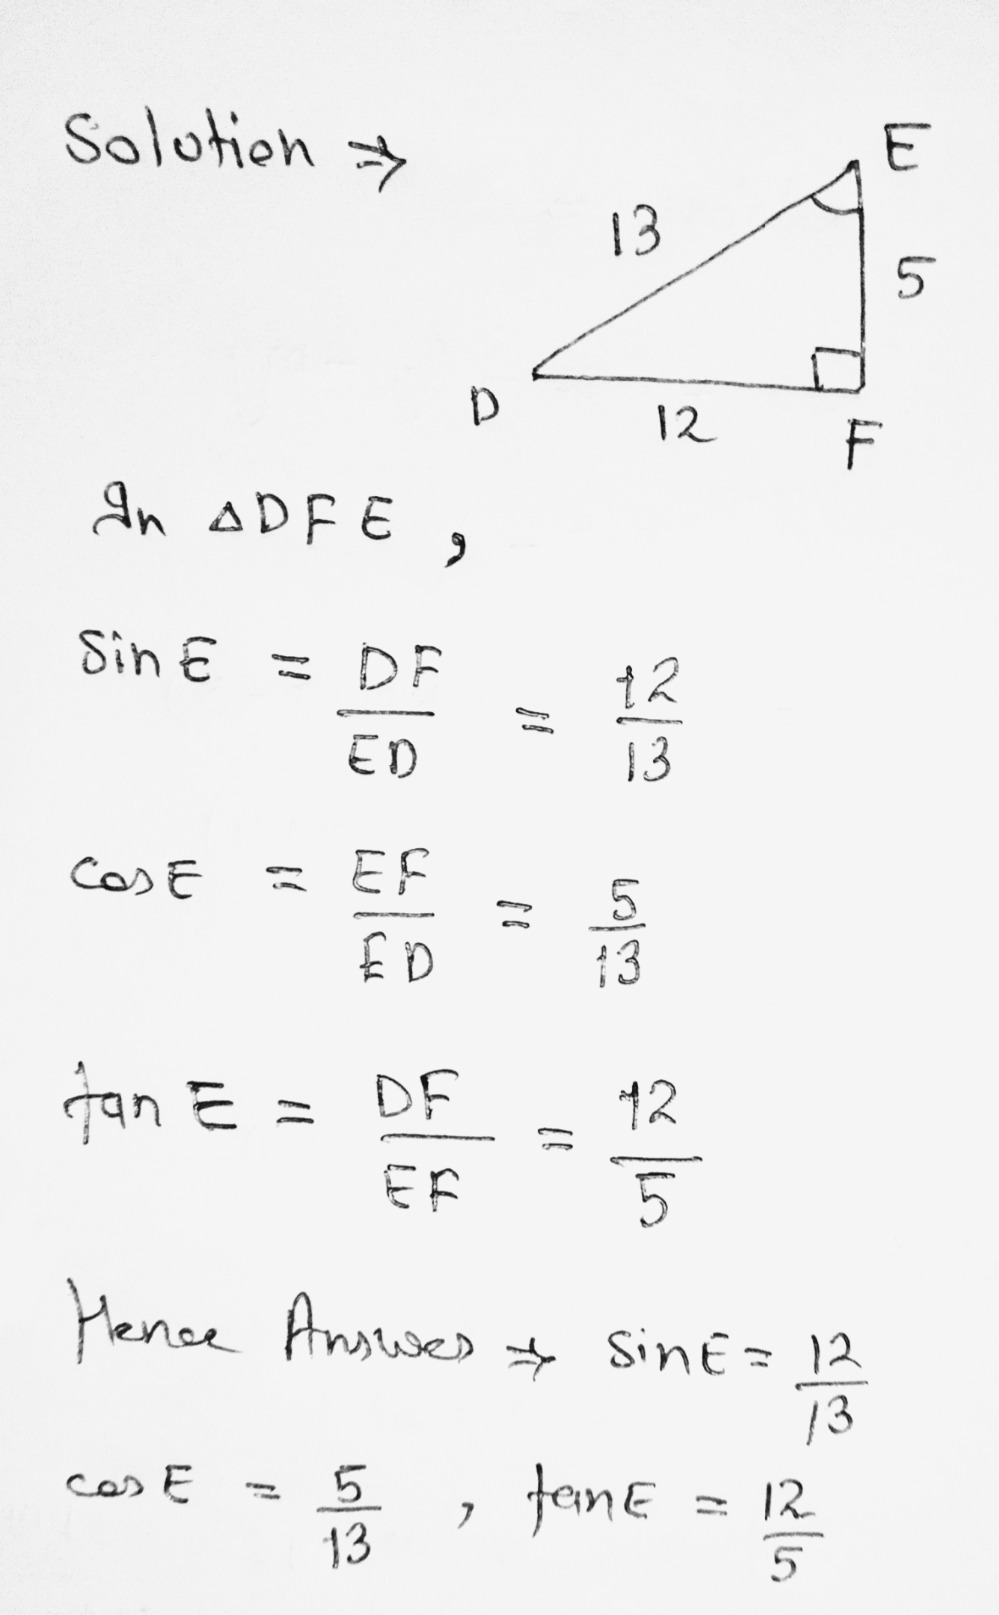 Solution ⇒
E
13
5
D
12
F
In △DFE,
Sin E = DF/ED = 12/13
cos E = EF/ED = 5/13
tan E = DF/EF = 12/5
Hence Answer ⇒ sin E = 12/13
cos E = 5/13 , tan E = 12/5